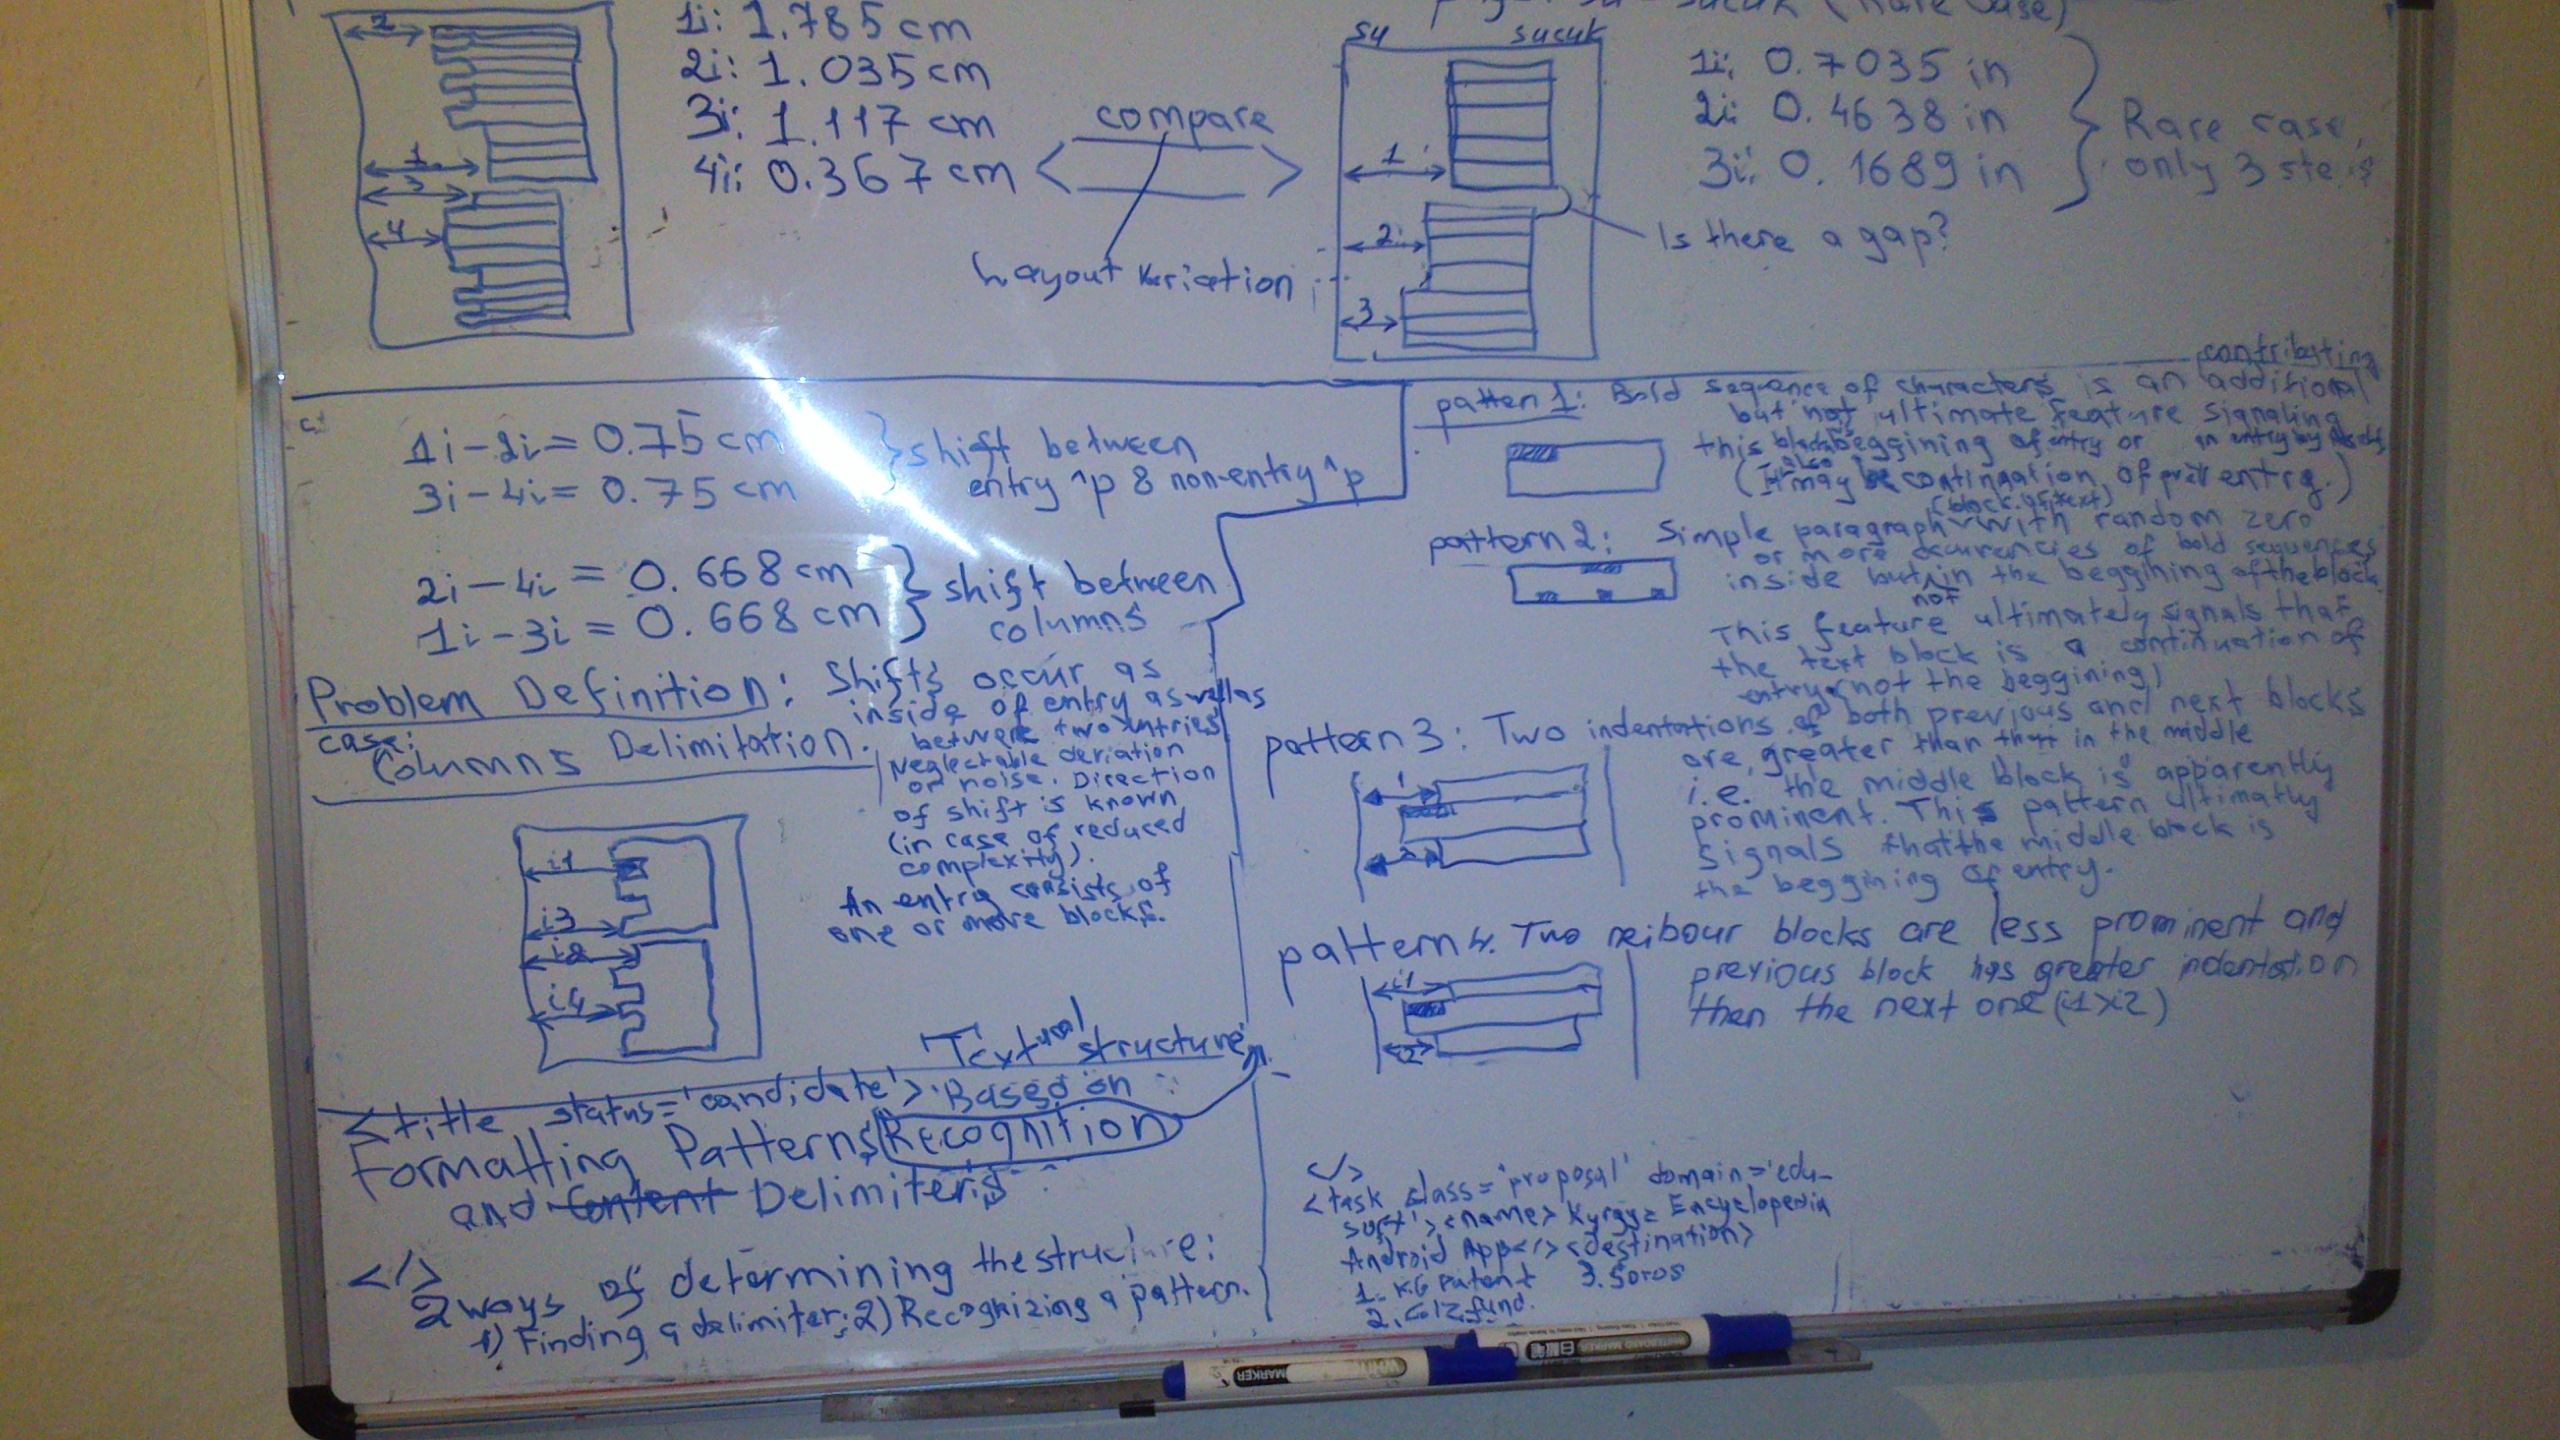 1i: 1.785 cm
2i: 1.035 cm
3i: 1.117 cm
4i: 0.367 cm
2
1
3
4
compare
Layout Variation
sucuk (Rare Case)
su sucuk
1
2
3
1i: 0.7035 in
2i: 0.4638 in
3i: 0.1689 in
Rare case,
only 3 ste
Is there a gap?
1i-2i = 0.75 cm
3i-4i = 0.75 cm
shift between
entry ^p & non-entry ^p
2i-4i = 0.668 cm
1i-3i = 0.668 cm
shift between
columns
Problem Definition:
case:
Columns Delimitation.
Shifts occur as
inside of entry as well as
between two entries
Neglectable deviation
or noise. Direction
of shift is known
(in case of reduced
complexity).
An entry consists of
one or more blocks.
i1
i3
i2
i4
Textual structure
<title status='candidate'> Based on
Formatting Patterns Recognition
and Content Delimiters
</>
2 ways of determining the structure:
1) Finding a delimiter; 2) Recognizing a pattern.
contributing
pattern 1: Bold sequence of characters is an additional
but not ultimate feature signaling
this block beggining of entry or an entry by itself
also
(It may be continuation of prev entry.)
(block of text)
pattern 2: Simple paragraph with random zero
or more occurencies of bold sequences
inside but in the beggining of the block
not
This feature ultimately signals that
the text block is a continuation of
entry (not the beggining)
pattern 3: Two indentations of both previous and next blocks
are greater than that in the middle
i.e. the middle block is apparently
prominent. This pattern ultimatly
signals that the middle block is
the beggining of entry.
1
2
pattern 4. Two neibour blocks are less prominent and
previous block has greater indentation
then the next one (i1>i2)
i1
i2
</>
<task class='proposal' domain='edu-
soft'> <name> Kyrgyz Encyclopedia
Android App</> <destination>
1. KG Patent 3. Soros
2. fund.
MARKER